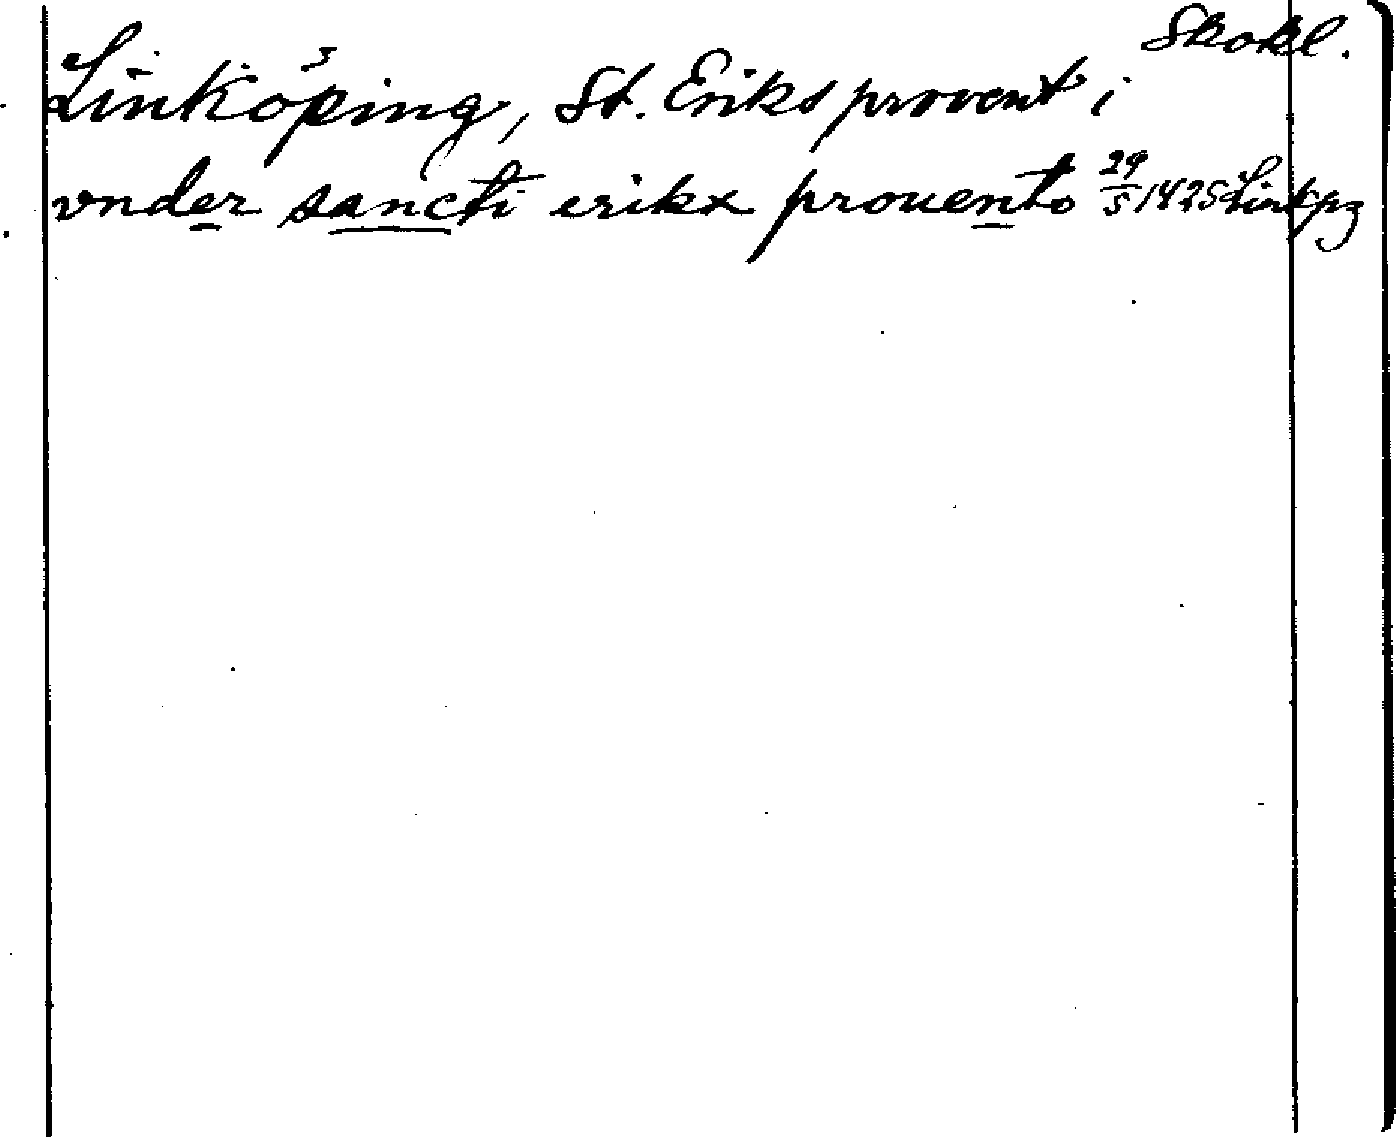 Skokl.
Linköping, St. Eriks provent i
vnder sancti erikx prouento 29/5 1425 Linkpg